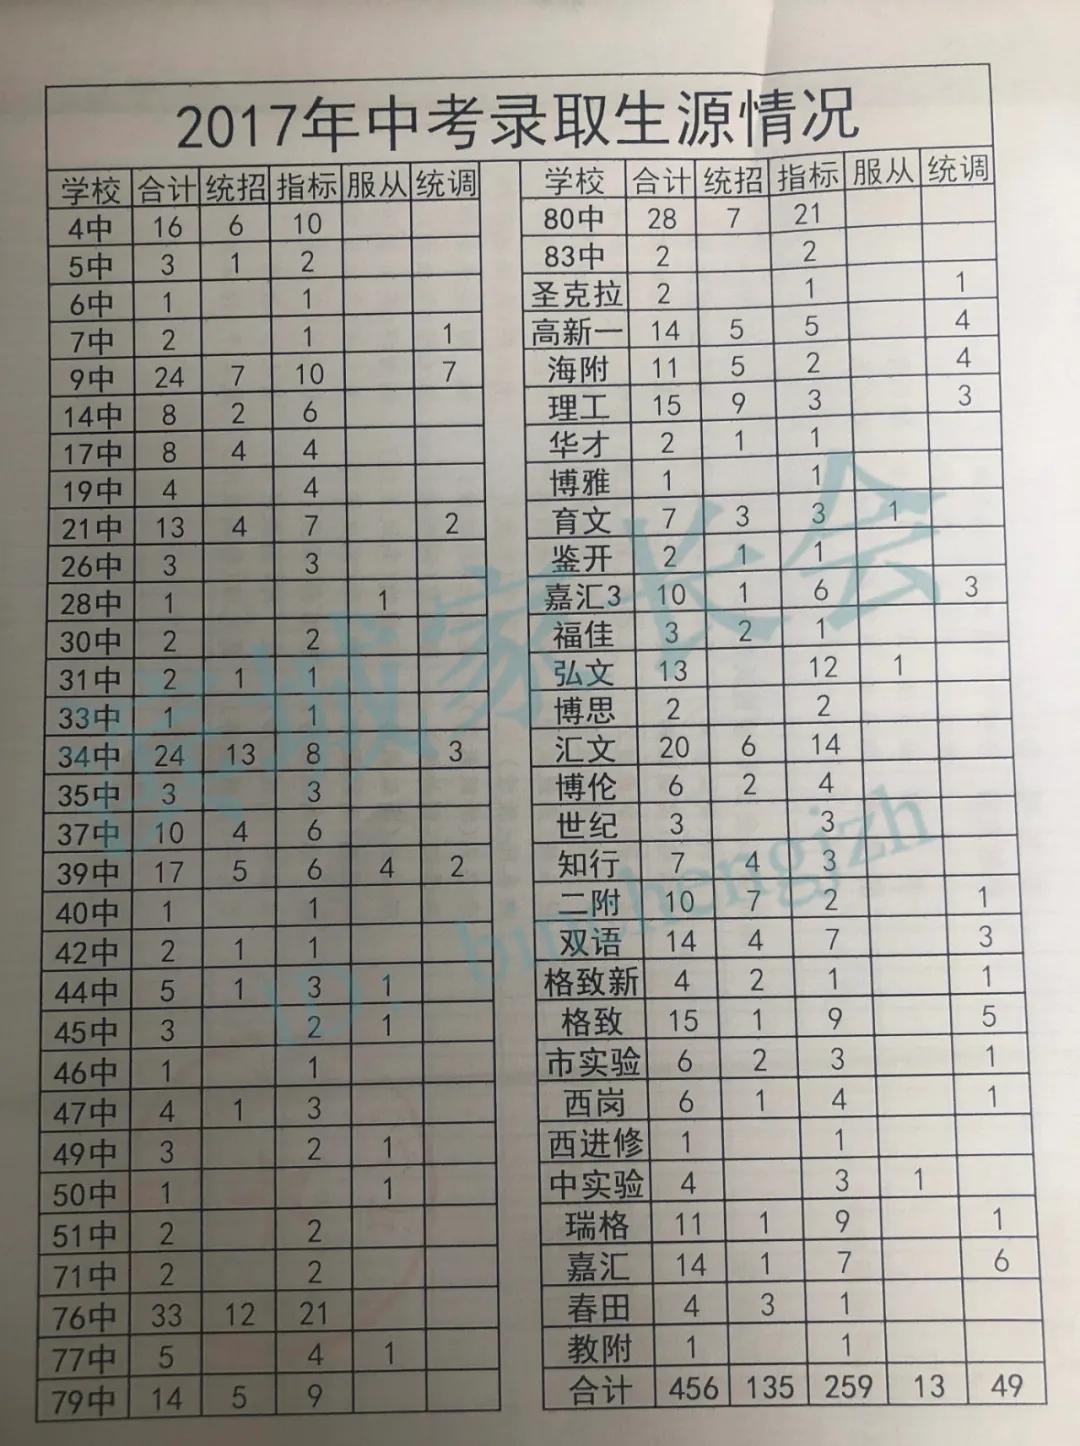 2017年中考录取生源情况
学校 合计 统招 指标 服从 统调
4中 16 6 10
5中 3 1 2
6中 1 1
7中 2 1 1
9中 24 7 10 7
14中 8 2 6
17中 8 4 4
19中 4 4
21中 13 4 7 2
26中 3 3
28中 1 1
30中 2 2
31中 2 1 1
33中 1 1
34中 24 13 8 3
35中 3 3
37中 10 4 6
39中 17 5 6 4 2
40中 1 1
42中 2 1 1
44中 5 1 3 1
45中 3 2 1
46中 1 1
47中 4 1 3
49中 3 2 1
50中 1 1
51中 2 2
71中 2 2
76中 33 12 21
77中 5 4 1
79中 14 5 9
学校 合计 统招 指标 服从 统调
80中 28 7 21
83中 2 2
圣克拉 2 1 1
高新一 14 5 5 4
海附 11 5 2 4
理工 15 9 3 3
华才 2 1 1
博雅 1 1
育文 7 3 3 1
鉴开 2 1 1
嘉汇3 10 1 6 3
福佳 3 2 1
弘文 13 12 1
博思 2 2
汇文 20 6 14
博伦 6 2 4
世纪 3 3
知行 7 4 3
二附 10 7 2 1
双语 14 4 7 3
格致新 4 2 1 1
格致 15 1 9 5
市实验 6 2 3 1
西岗 6 1 4 1
西进修 1 1
中实验 4 3 1
瑞格 11 1 9 1
嘉汇 14 1 7 6
春田 4 3 1
教附 1 1
合计 456 135 259 13 49
城家长会
ID: binchengjzh